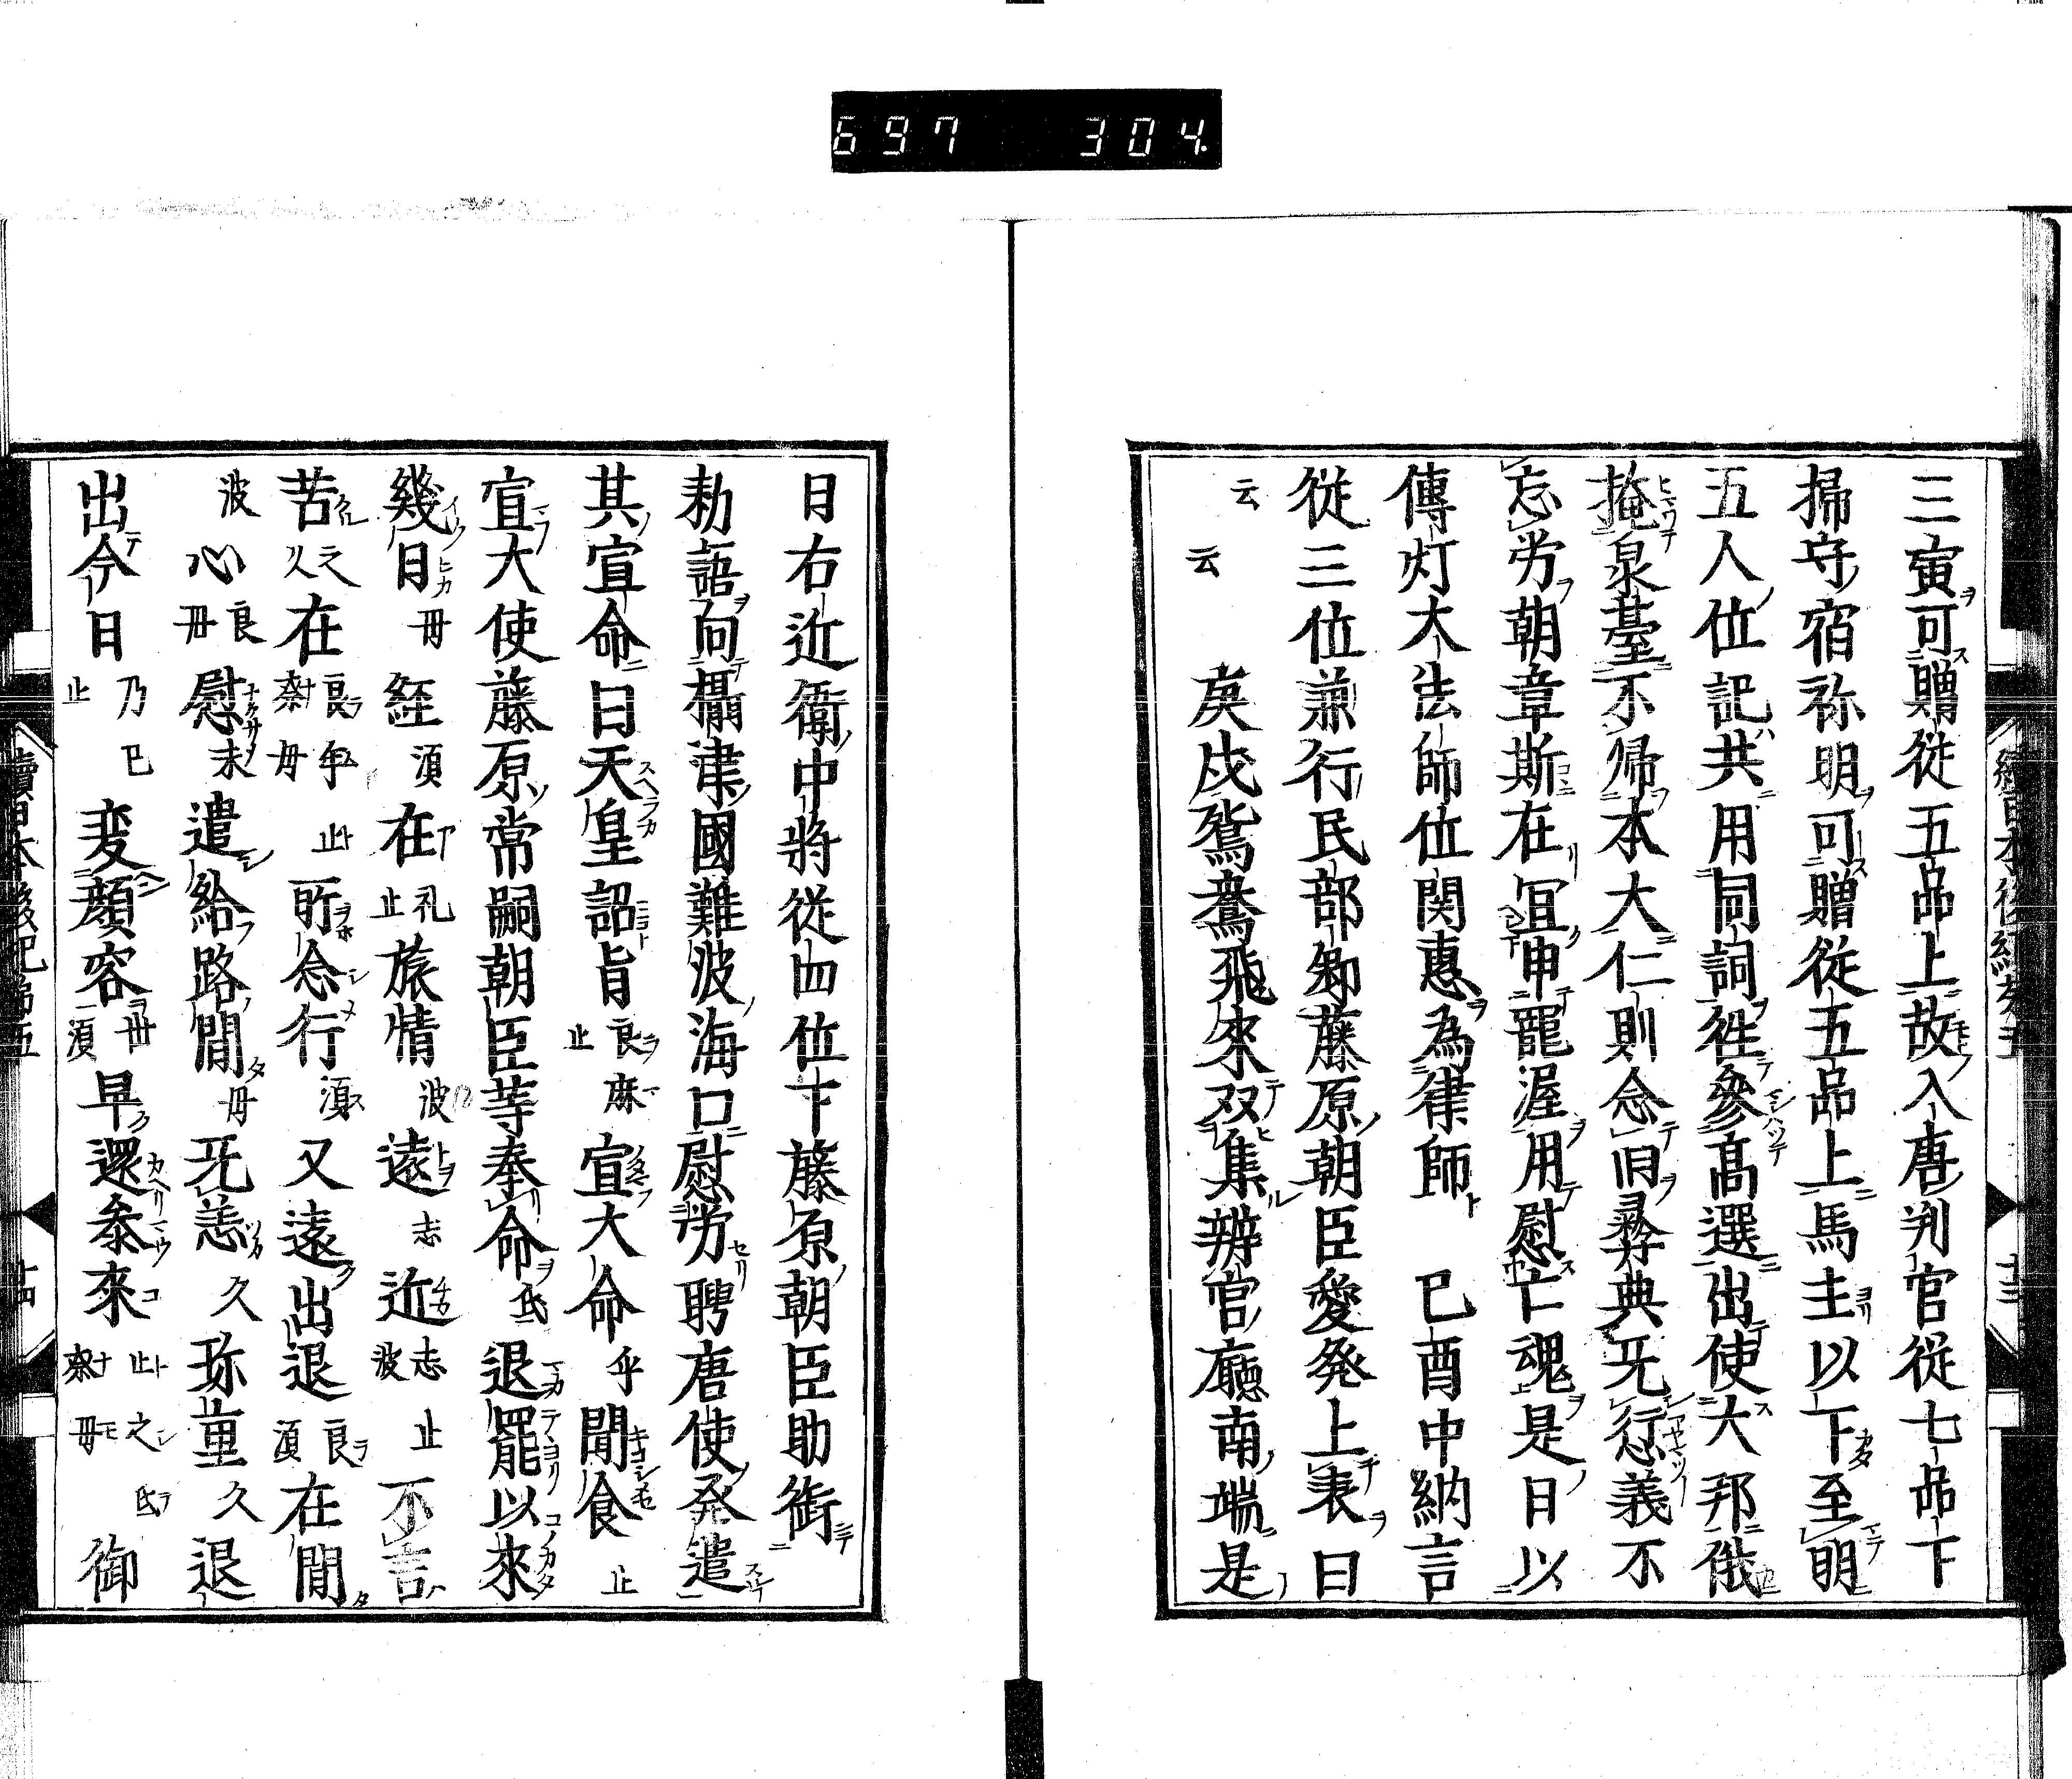 697 304.
三寅可贈従五品上故入唐判官従七品下
掃守宿祢明可贈従五品上馬主以下至明
五人位記共用同詞徃參髙選出使大邦俄
掩泉臺不帰本大仁則念旧彛典无愆義不
忘労朝章斯在冝申寵渥用慰亡魂是日以
傳灯大法師位関惠為律師 巳酉中納言
従三位兼行民部卿藤原朝臣愛発上表曰
云云 庚戌鴛鴦飛來双集辨官廳南端是
日右近衛中將従四位下藤原朝臣助銜
勅語向攝津國難波海口慰労聘唐使発遣
其宣命曰天皇詔旨良麻止宣大命乎聞食止
宣大使藤原常嗣朝臣等奉命氐退罷以來
幾日毋経須在礼止旅情波遠志近志波止不言
苦之久在良牟止奈毋所念行須又遠出退良須在間
波心良毋慰未遣給路間毋无恙久珎重久退
出今日乃巳止変顔容世須早還参來止之氐奈毋御
續日本後紀巻五 十三
續日本後紀巻五 十四